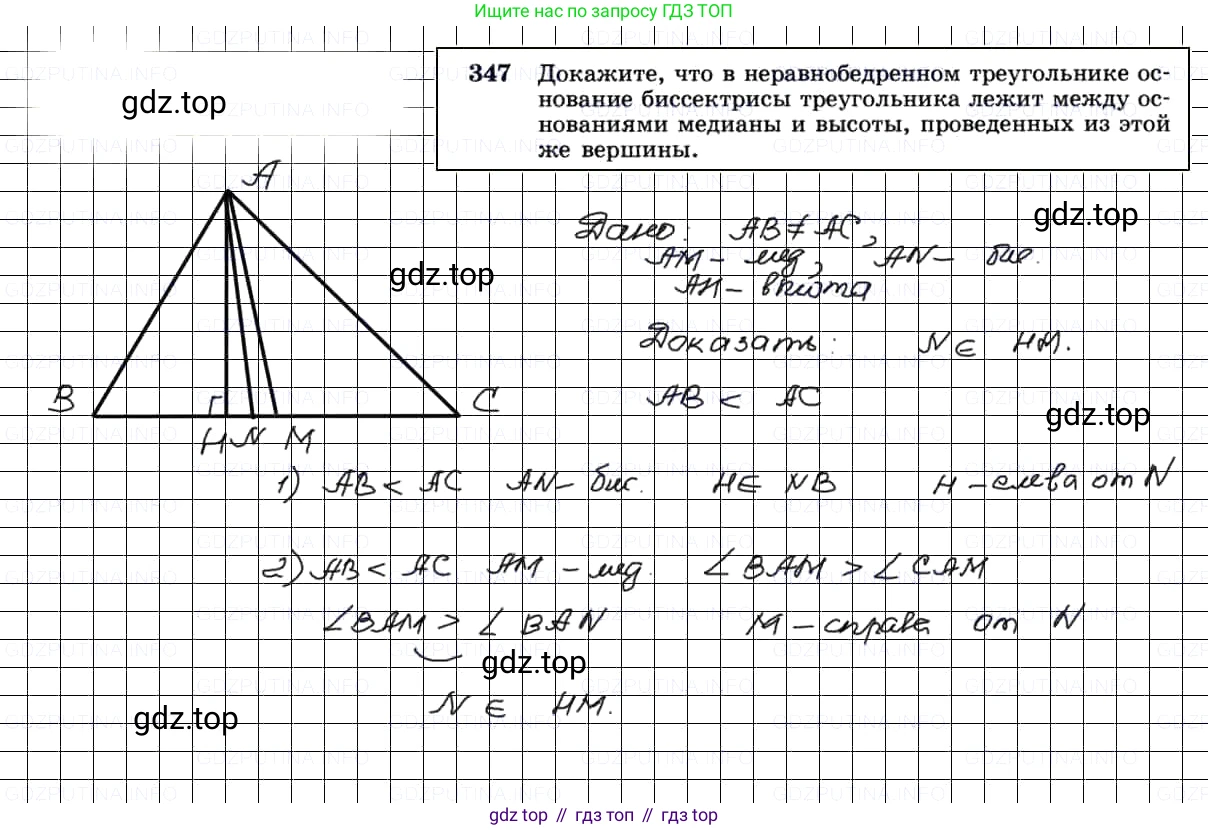 Ищите нас по запросу ГДЗ ТОП
347 Докажите, что в неравнобедренном треугольнике ос-
нование биссектрисы треугольника лежит между ос-
нованиями медианы и высоты, проведенных из этой
же вершины.
gdz.top
A
Дано: AB ≠ AC,
gdz.top
AM – мед, AN – бис.
gdz.top
AH – высота
Доказать: N ∈ HM.
B
C
AB < AC
gdz.top
H N M
1) AB < AC AN – бис. H ∈ NB H – слева от N
2) AB < AC AM – мед. ∠BAM > ∠CAM
∠BAM > ∠BAN M – справа от N
gdz.top
N ∈ HM.
gdz.top
gdz top // гдз топ // gdz top
GDZPUTINA.INFO